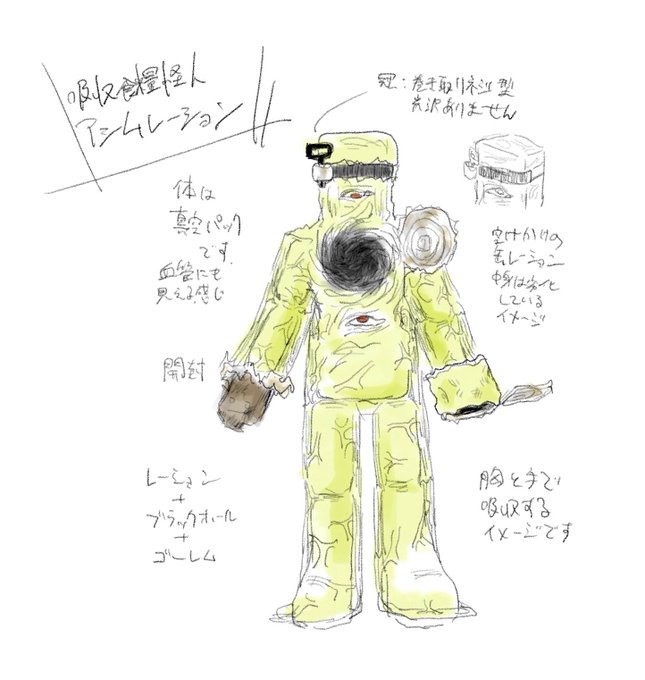 吸収食糧怪人
アシムレーション
冠:巻き取りネジ型
光沢ありません
体は
真空パック
です
血管にも
見える感じ
空けかけの
缶レーション
中身は劣化
している
イメージ
開封
レーション
+
ブラックホール
+
ゴーレム
胸と手で
吸収する
イメージです